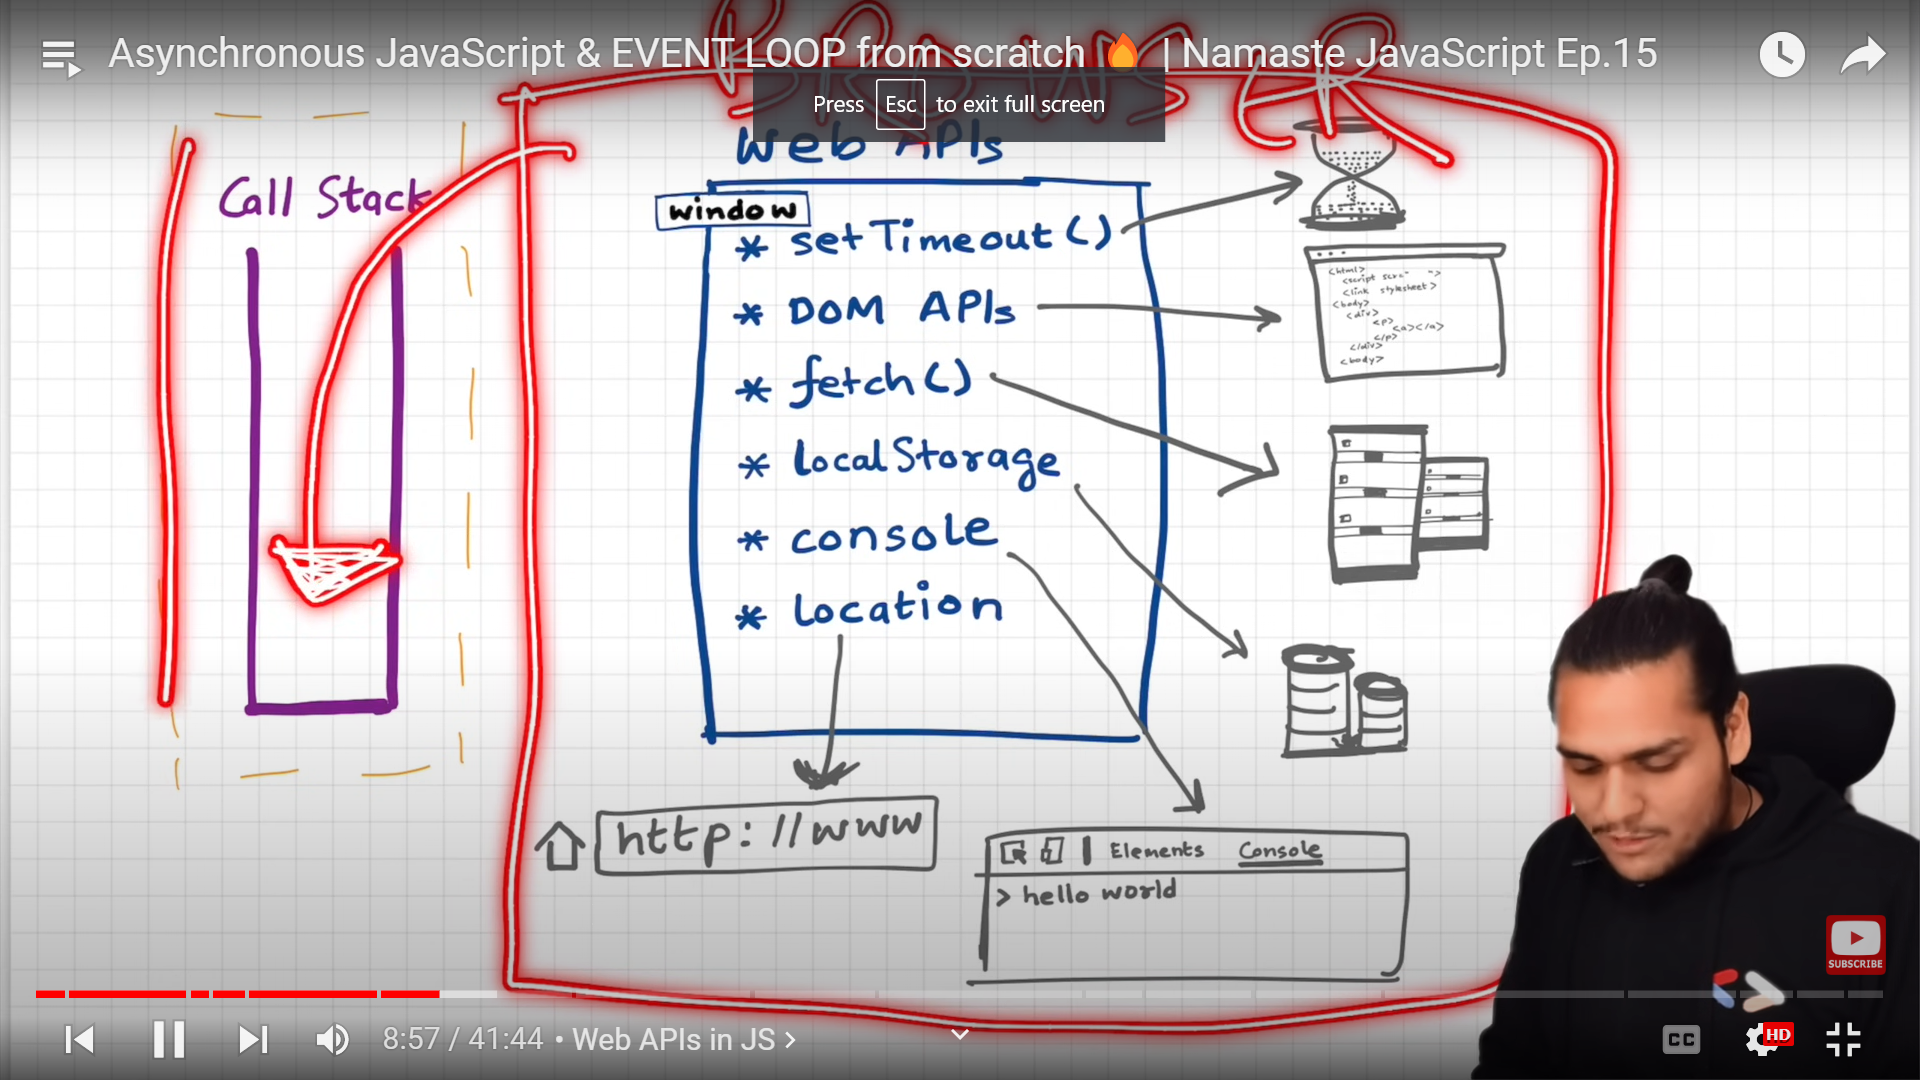 Asynchronous JavaScript & EVENT LOOP from scratch 🔥 | Namaste JavaScript Ep.15
BROWSER
Press Esc to exit full screen
Web APIs
Call Stack
window
* setTimeout()
* DOM APIs
* fetch()
* localStorage
* console
* location
<html>
<link stylesheet>
<body>
<div>
<p>
<a></a>
</p>
</div>
<body>
http://www
Elements Console
> hello world
SUBSCRIBE
8:57 / 41:44 • Web APIs in JS >
CC
HD